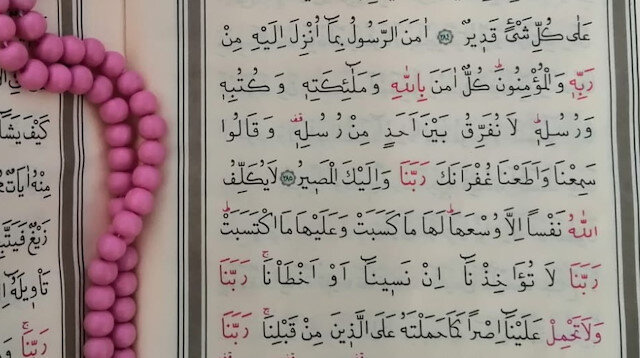 عَلٰى كُلِّ شَيْءٍ قَدٖيرٌ ﴿٢٨٤﴾ اٰمَنَ الرَّسُولُ بِمَٓا اُنْزِلَ اِلَيْهِ مِنْ
رَبِّهٖ وَالْمُؤْمِنُونَؕ كُلٌّ اٰمَنَ بِاللّٰهِ وَمَلٰٓئِكَتِهٖ وَكُتُبِهٖ
وَرُسُلِهٖؕ لَا نُفَرِّقُ بَيْنَ اَحَدٍ مِنْ رُسُلِهٖࣞ وَقَالُوا
سَمِعْنَا وَاَطَعْنَا غُفْرَانَكَ رَبَّنَا وَاِلَيْكَ الْمَصٖيرُ ﴿٢٨٥﴾ لَا يُكَلِّفُ
اللّٰهُ نَفْسًا اِلَّا وُسْعَهَاؕ لَهَا مَا كَسَبَتْ وَعَلَيْهَا مَا اكْتَسَبَتْؕ
رَبَّنَا لَا تُؤَاخِذْنَٓا اِنْ نَسٖينَٓا اَوْ اَخْطَأْنَاۚ رَبَّنَا
وَلَا تَحْمِلْ عَلَيْنَٓا اِصْرًا كَمَا حَمَلْتَهُ عَلَى الَّذٖينَ مِنْ قَبْلِنَاۚ رَبَّنَا
كَيْفَ يَشَا
مِنْهُ اٰيَاتٌ
زَيْغٌ فَيَتَّبِ
تَأْوٖيلَهُ
رَبَّنَا